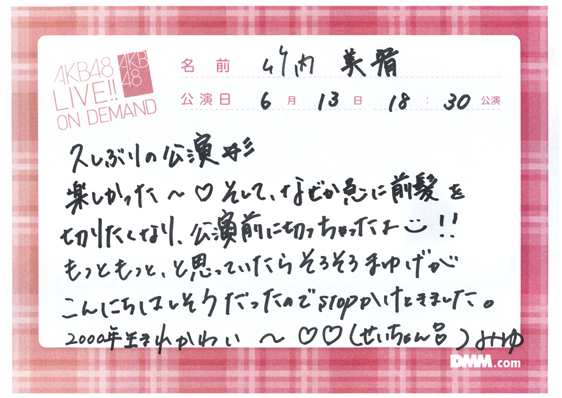 AKB48
LIVE!!
ON DEMAND
AKB
48
名前 竹内 美宥
公演日 6月 13日 18:30 公演
久しぶりの公演
楽しかった〜♡そして、なぜか急に前髪を
切りたくなり、公演前に切っちゃったよ!!
もっともっと、と思っていたらそろそろまゆげが
こんにちはしそうだったのでstopかけときました。
2000年生まれかわいい〜♡♡(せいちゃん
)みゆ
DMM.com